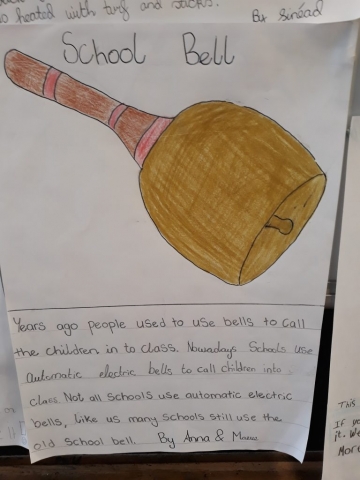 so heated with turf and sticks.
By Sinéad
School Bell
Years ago people used to use bells to call
the children in to class. Nowadays Schools use
automatic electric bells to call children into
class. Not all schools use automatic electric
bells, like us many schools still use the
old school bell. By Anna &
This
IF
it. We
More